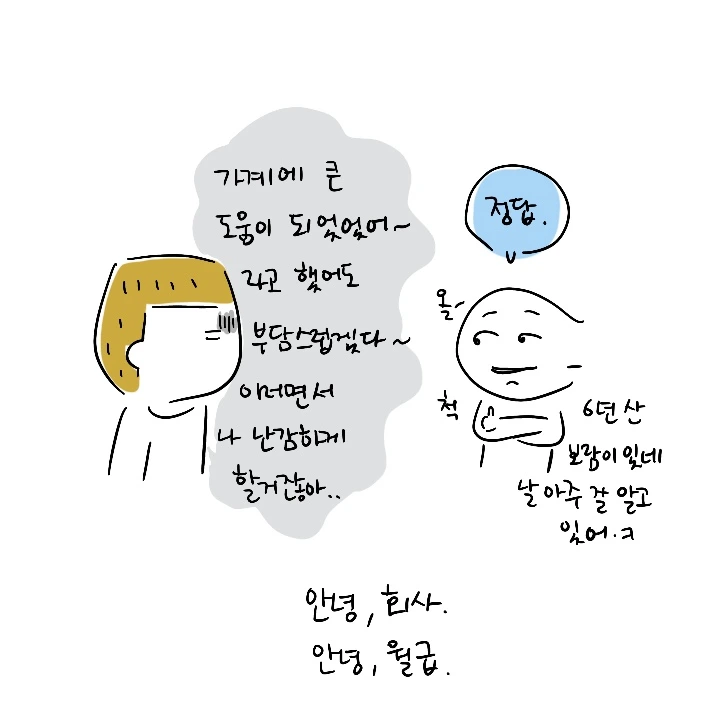 가계에 큰
도움이 되었었어~
라고 했어도
부담스럽겠다~
이러면서
나 난감하게
할거잖아..
정답.
올~
척
6년 산
보람이 있네
날 아주 잘 알고
있어.ㅋ
안녕, 회사.
안녕, 월급.